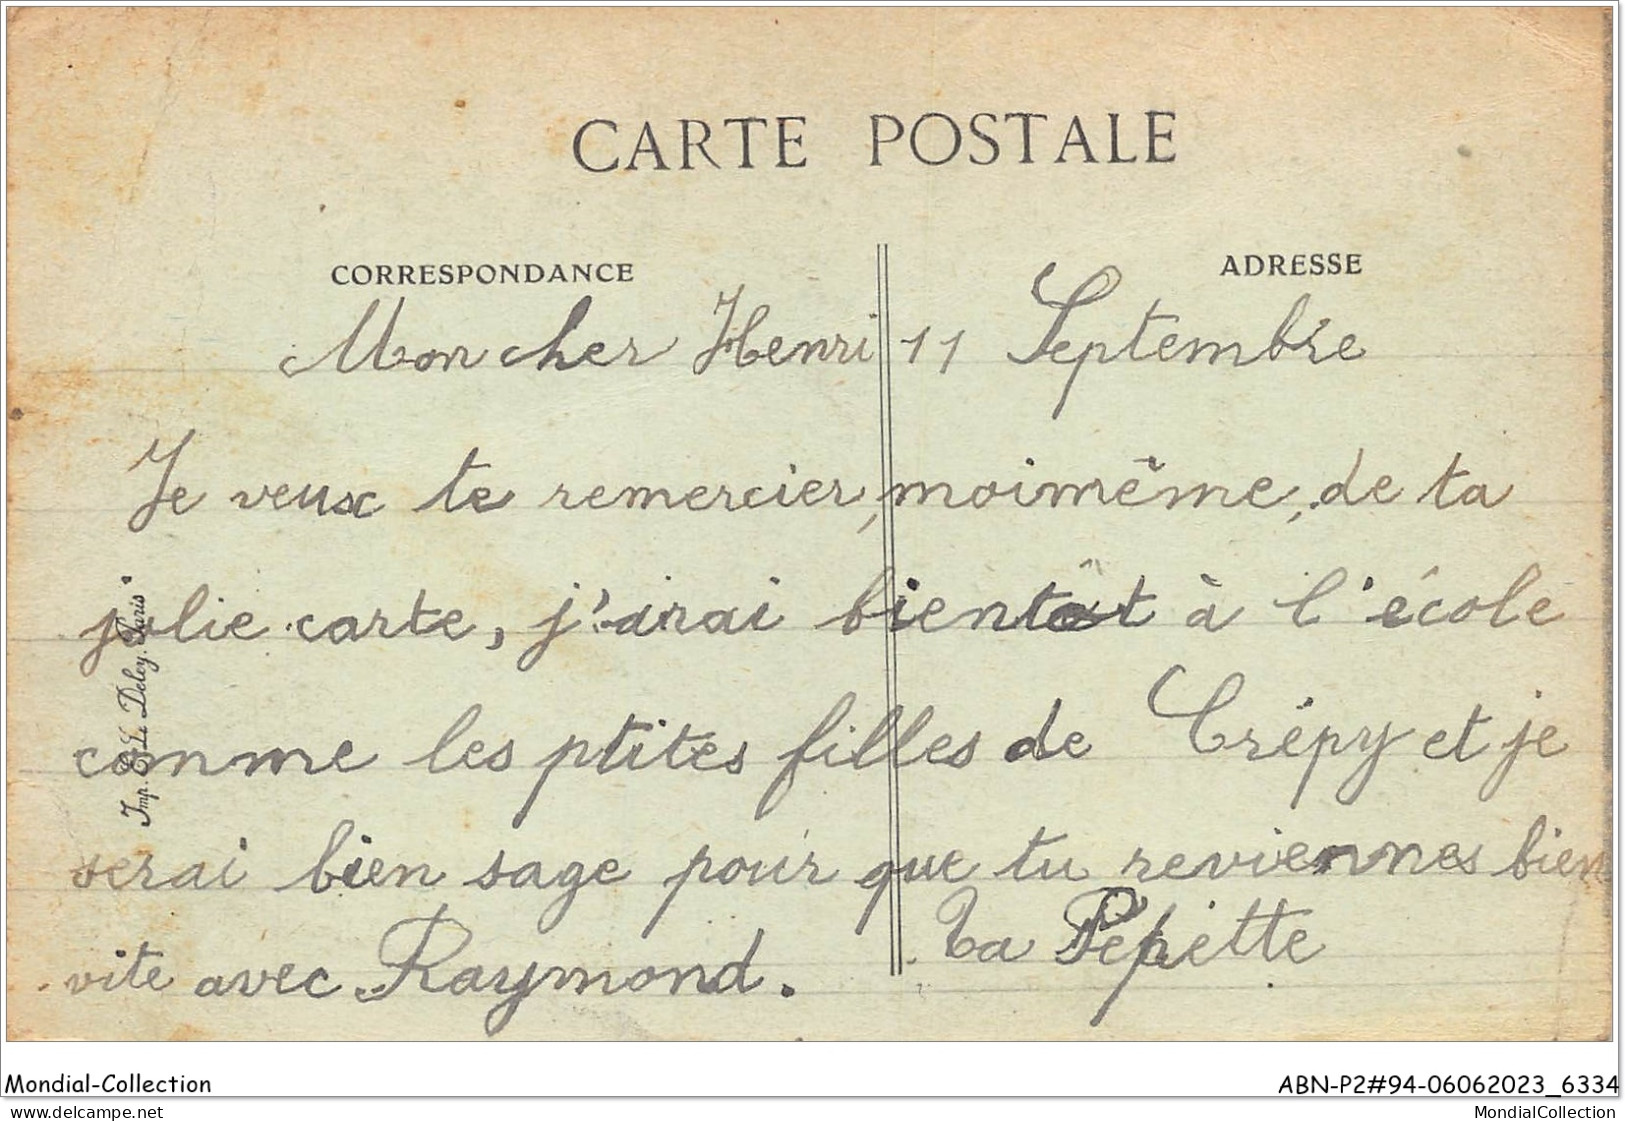 CARTE POSTALE
CORRESPONDANCE
ADRESSE
Mon cher Henri 11 Septembre
Je veux te remercier, moimême, de ta
jolie carte, j'irai bientôt à l'école
comme les ptites filles de Crépy et je
serai bien sage pour que tu reviennes bien
vite avec Raymond.
Ta Pepette
Imp. E. Le Deley. Paris
Mondial-Collection
ABN-P2#94-06062023_6334
www.delcampe.net
MondialCollection